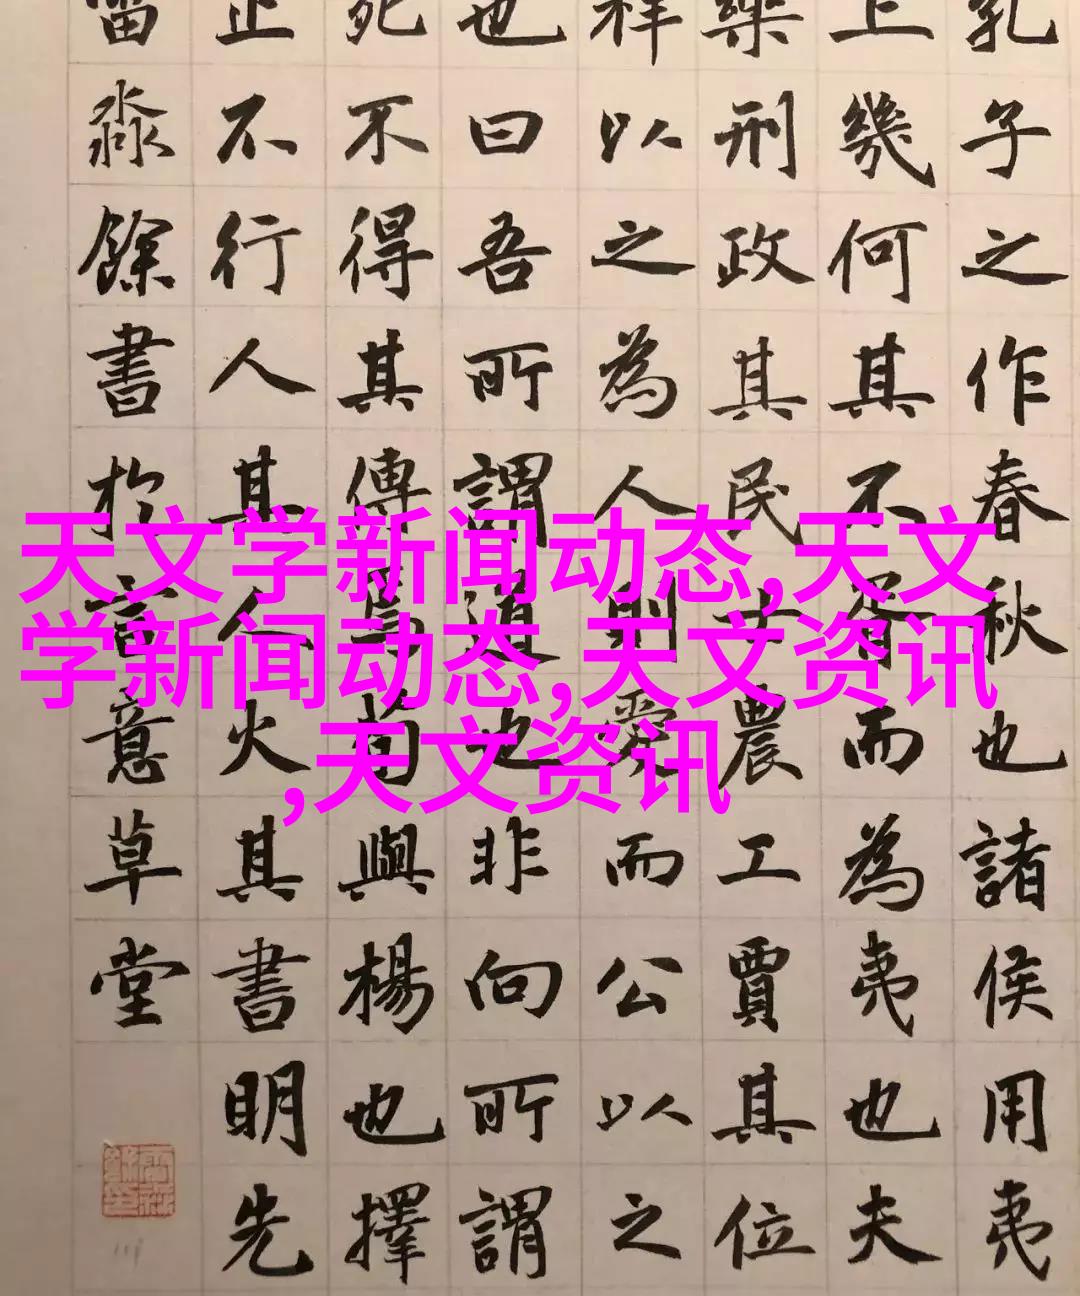 孔子之作春秋也諸侯用夷
上幾何其不胥而為夷也夫
樂刑政其民士農工賈其位
祥以之為人則愛而公以之
也曰吾所謂道也非向所謂
死不得其傳焉荀與楊也擇
止不行人其人火其書明先
淼餘書於言意草堂
天文学新闻动态,天文
学新闻动态,天文资讯
,天文资讯